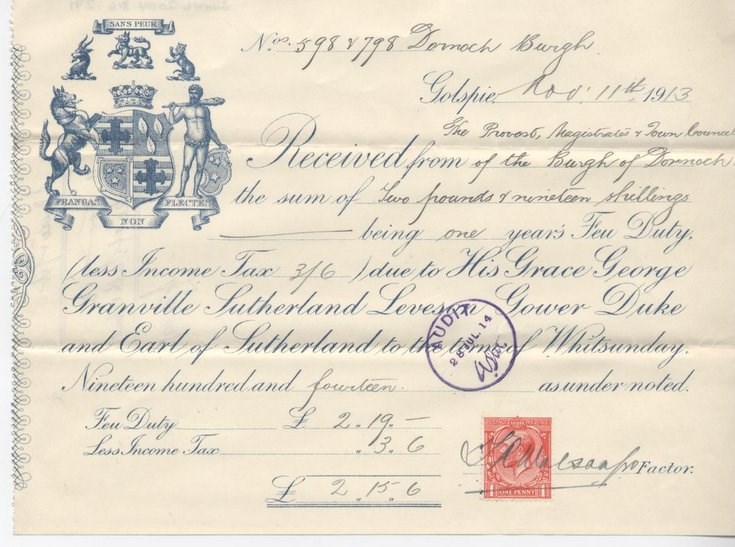 SANS PEUR
FRANGAS NON FLECTES
Nos. 598 & 798 Dornoch Burgh
Golspie, Nov: 11th 1913
The Provost, Magistrates & Town Council
Received from of the Burgh of Dornoch
the sum of Two pounds & nineteen shillings
being one year's Feu Duty,
(less Income Tax 3/6 ) due to His Grace George
Granville Sutherland Leveson Gower Duke
and Earl of Sutherland to the term of Whitsunday,
Nineteen hundred and fourteen as under noted.
AUDIT
28 JUL 14
Feu Duty £ 2. 19. —
Less Income Tax . 3. 6
£ 2. 15. 6
ONE PENNY
Factor.